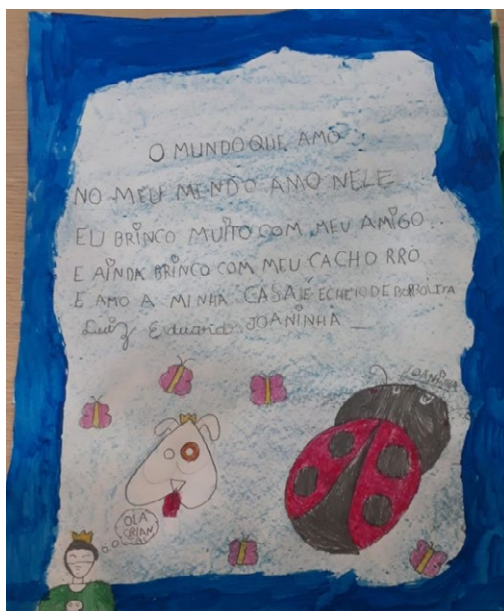 O MUNDO QUE AMO
NO MEU MENDO AMO NELE
EU BRINCO MUITO COM MEU AMIGO..
E AINDA BRINCO COM MEU CACHO RRO
E AMO A MINHA CASA É ECHEIO DE BORROLITA
Luiz Eduardo JOANINHA
JOANINHA
OLA
CRIAN